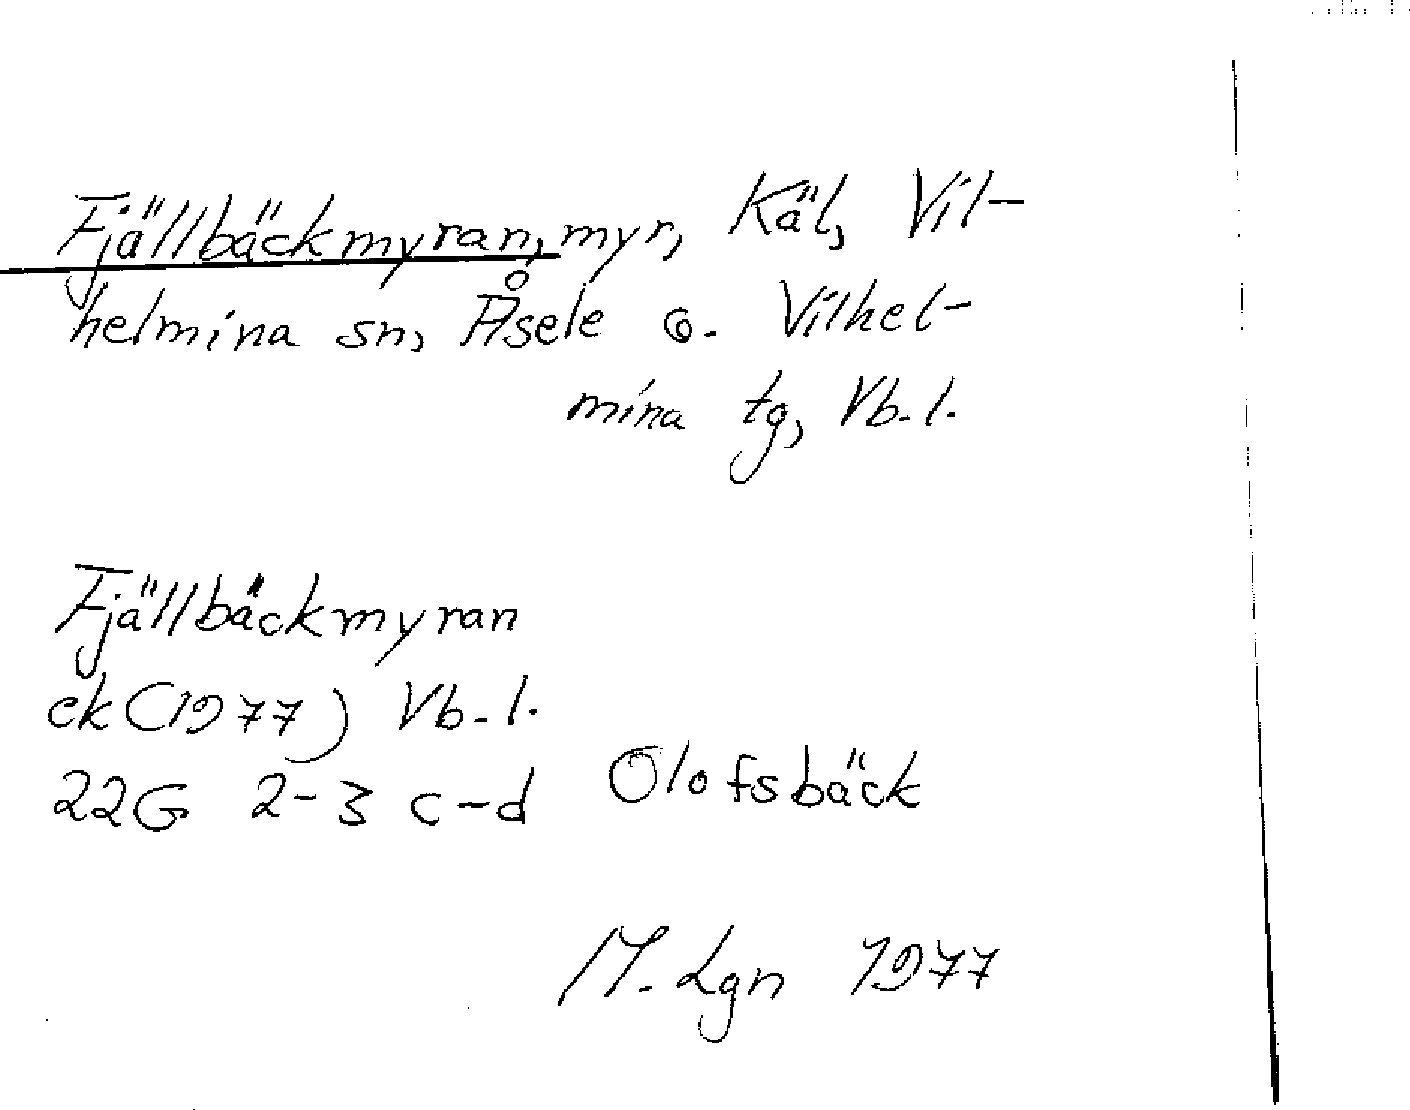 Fjällbäckmyran, myr, Käl, Vil-
helmina sn, Åsele o. Vilhel-
mina tg, Vb. l.
Fjällbäckmyran
ek (1977) Vb. l.
22G 2-3 c-d Olofsbäck
M. Lgn 1977